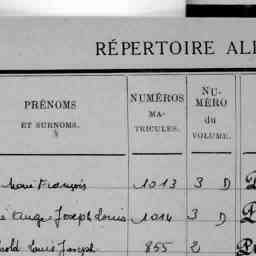 RÉPERTOIRE AL
PRÉNOMS
ET SURNOMS.
NUMÉROS
MA-
TRICULES.
NU-
MÉRO
du
VOLUME.
François 1013 3 D
Ange Joseph Louis 1014 3 D
Louis Joseph 855 2